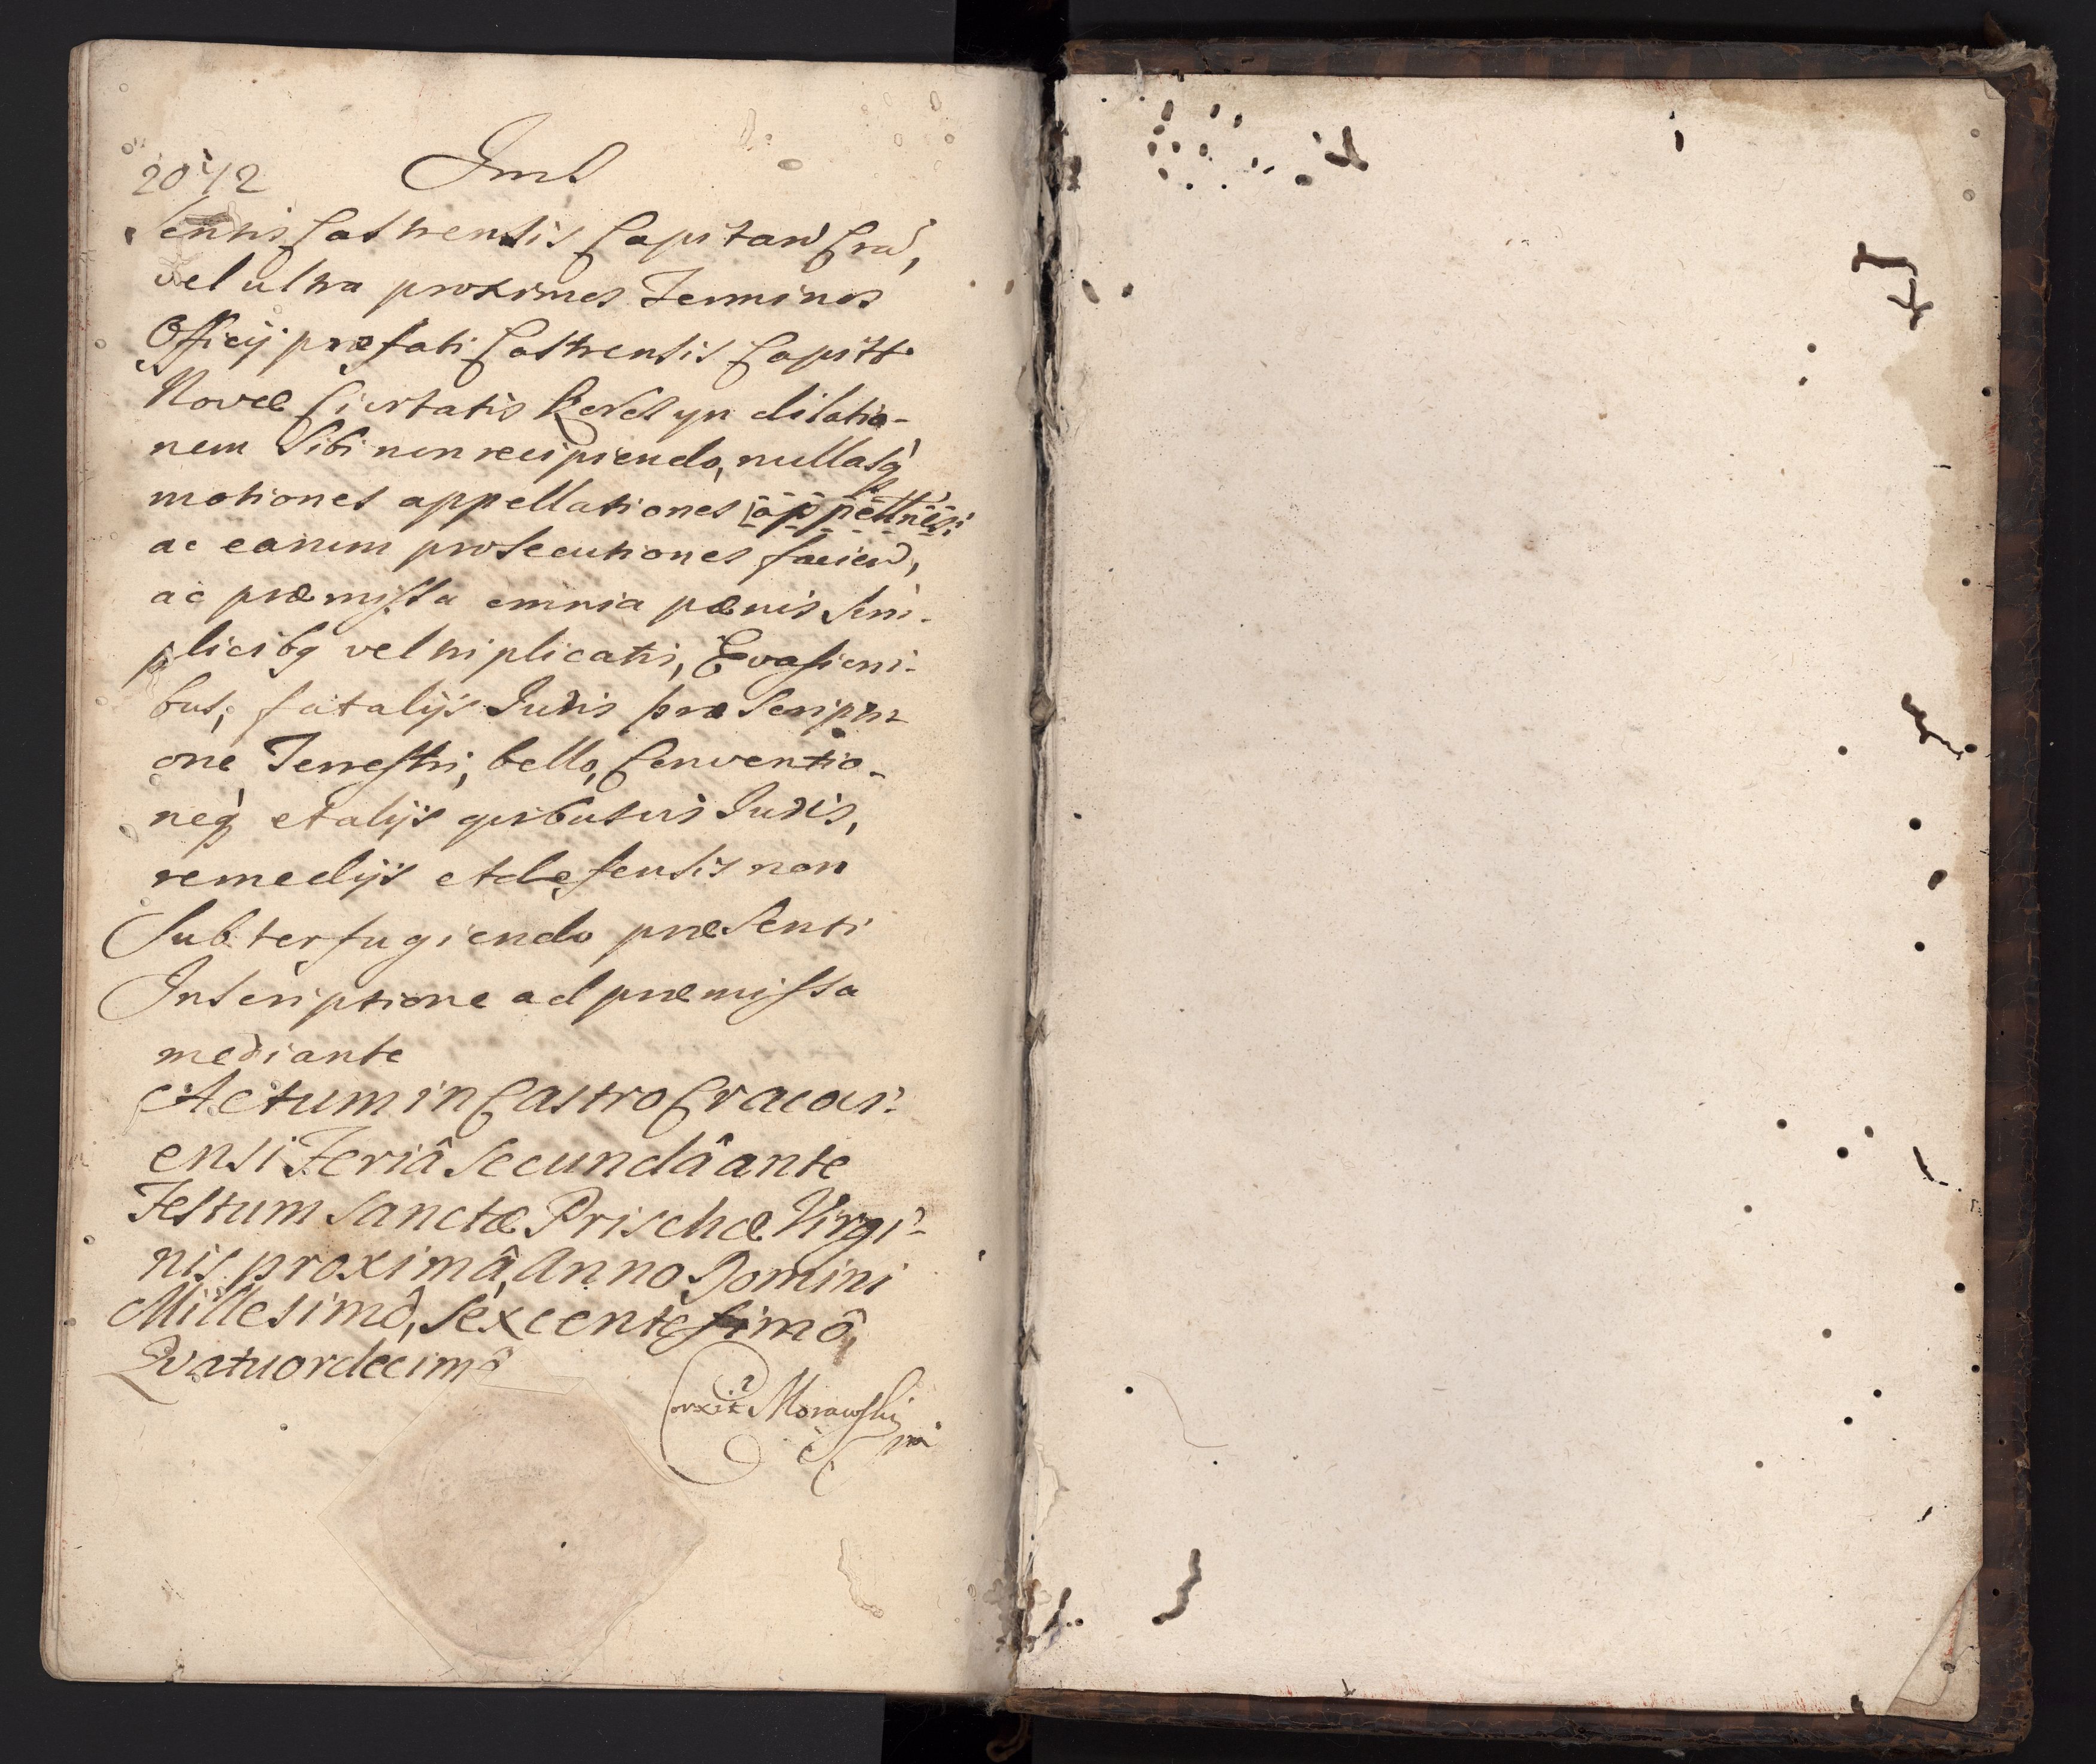 2042
sentis Castrensis Capitan Crac,
vel ultra proximos Terminos
Officij præfati Castrensis Capitt
Novæ Civitatis Korcyn dilatio-
nem Sibi non recipiendo, nullasq
motiones appellationes
ac earum prosecutiones faciend,
ac præmissa omnia pænis Sim-
plicibq vel triplicatis, Evasioni-
bus, fatalijs Juris præscripti-
one Terrestri, bello, Conventio-
neq et alijs quibusvis Juris,
remedijs et defensis non
Subterfugiendo præsenti
Inscriptione ad præmissa
mediante
Actum in Castro Cracovi-
ensi Feriâ Secundâ ante
Festum Sanctæ Prischæ Virgi-
nis proximâ, Anno Domini
Millesimô, Sexcentesimô,
Qvatuordecimô
Corxit Morawski
mp